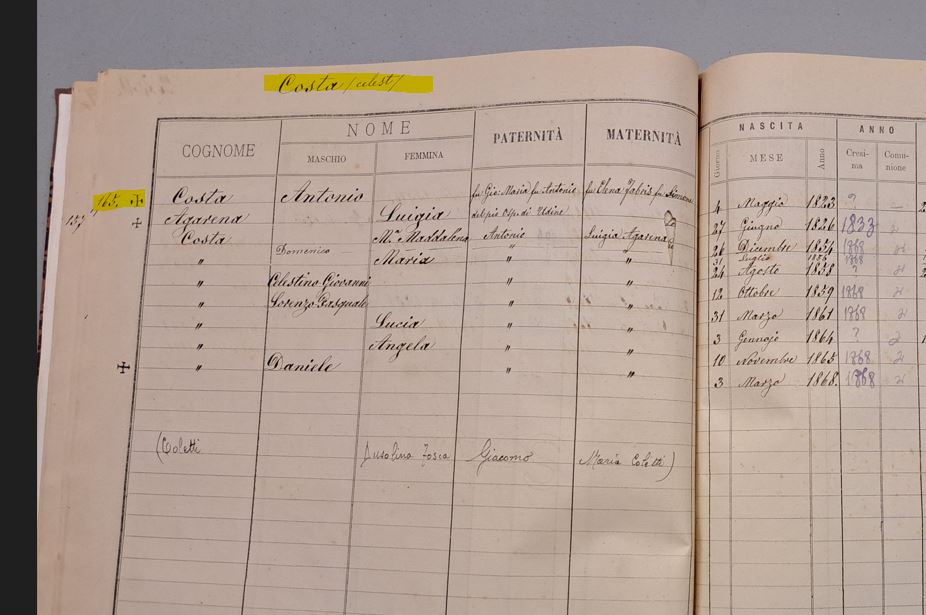 Costa /celest/
NOME
COGNOME MASCHIO FEMMINA PATERNITÀ MATERNITÀ
NASCITA ANNO
Giorno MESE Anno Cresima Comunione
165. Costa Antonio fu Gio: Maria fu Antonio fu Elena Fabris fu Simone 4 Maggio 1823 ? –
157 Agarena Luigia del pio Osp. di Udine 27 Giugno 1826 1833
Costa Mª Maddalena Antonio Luigia Agarena 26 Dicembre 1854 1868
Domenico 31 Luglio 1856 1868
" Maria " " 24 Agosto 1858 ?
" Celestino Giovanni " " 12 Ottobre 1859 1868
" Lorenzo Pasquale " " 31 Marzo 1861 1868
" Lucia " " 3 Gennajo 1864 ?
" Angela " " 10 Novembre 1865 1868
" Daniele " " 3 Marzo 1868. 1868
(Coletti Tosca Giacomo Maria Coletti)